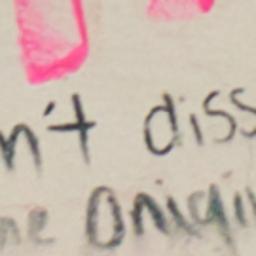 n't diss
ne Onigi